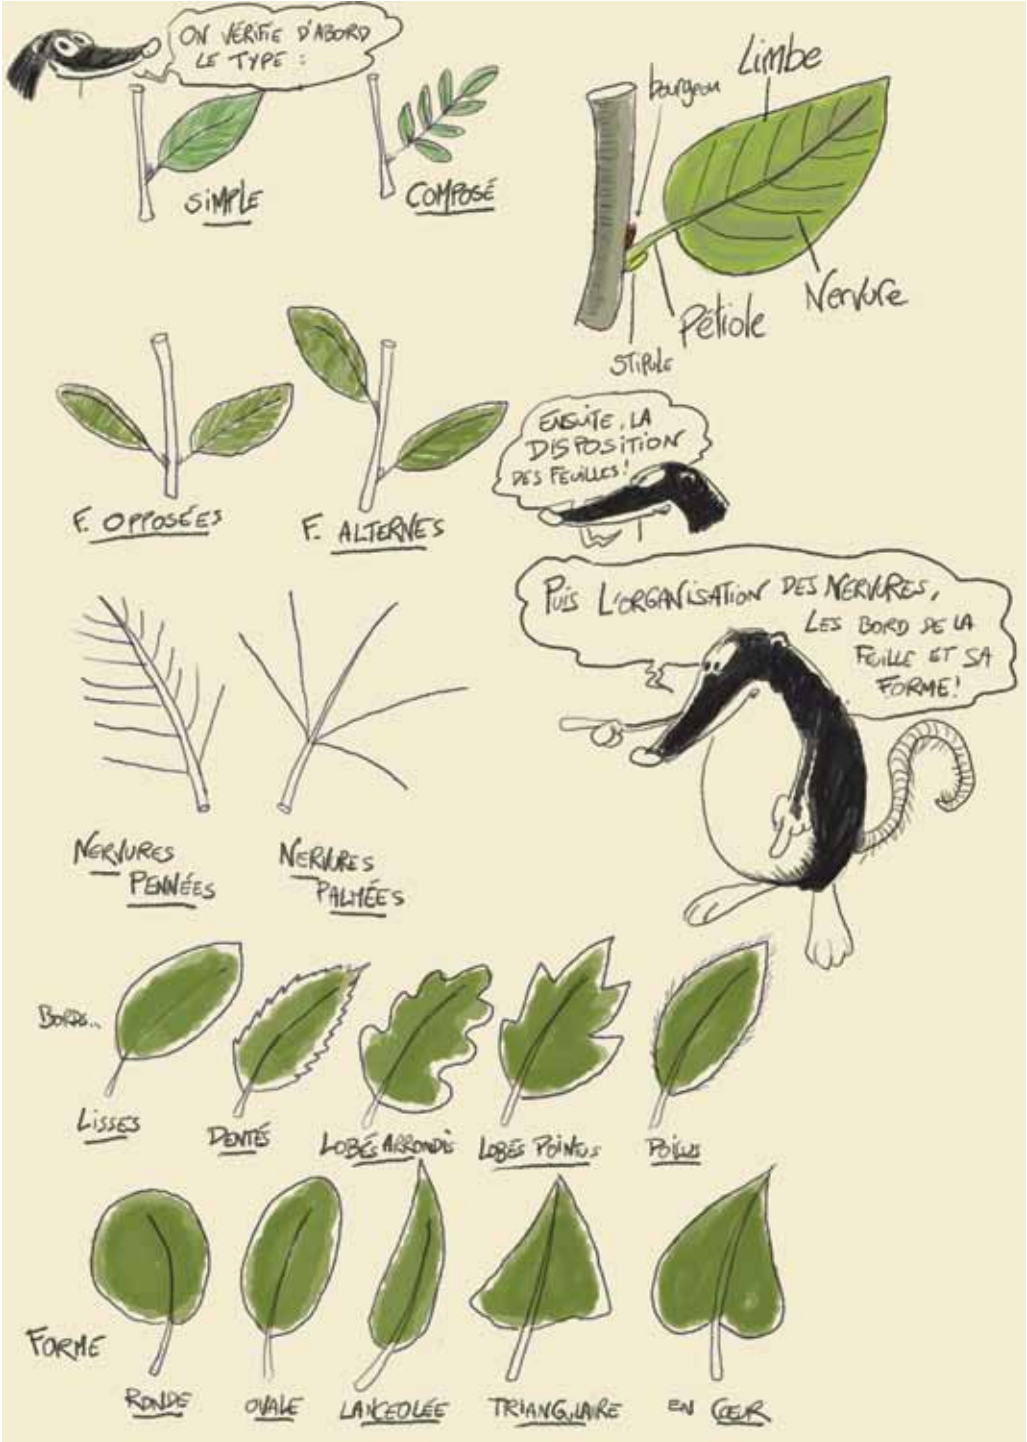 ON VÉRIFIE D'ABORD
LE TYPE :
SIMPLE
COMPOSÉ
bourgeon
Limbe
Nervure
Pétiole
STIPULE
F. OPPOSÉES
F. ALTERNES
ENSUITE, LA
DISPOSITION
DES FEUILLES!
PUIS L'ORGANISATION DES NERVURES,
LES BORD DE LA
FEUILLE ET SA
FORME!
NERVURES
PENNÉES
NERVURES
PALMÉES
BORDS..
LISSES
DENTÉS
LOBÉS ARRONDIS
LOBÉS POINTUS
POILUS
FORME
RONDE
OVALE
LANCEOLÉE
TRIANGULAIRE
EN CŒUR